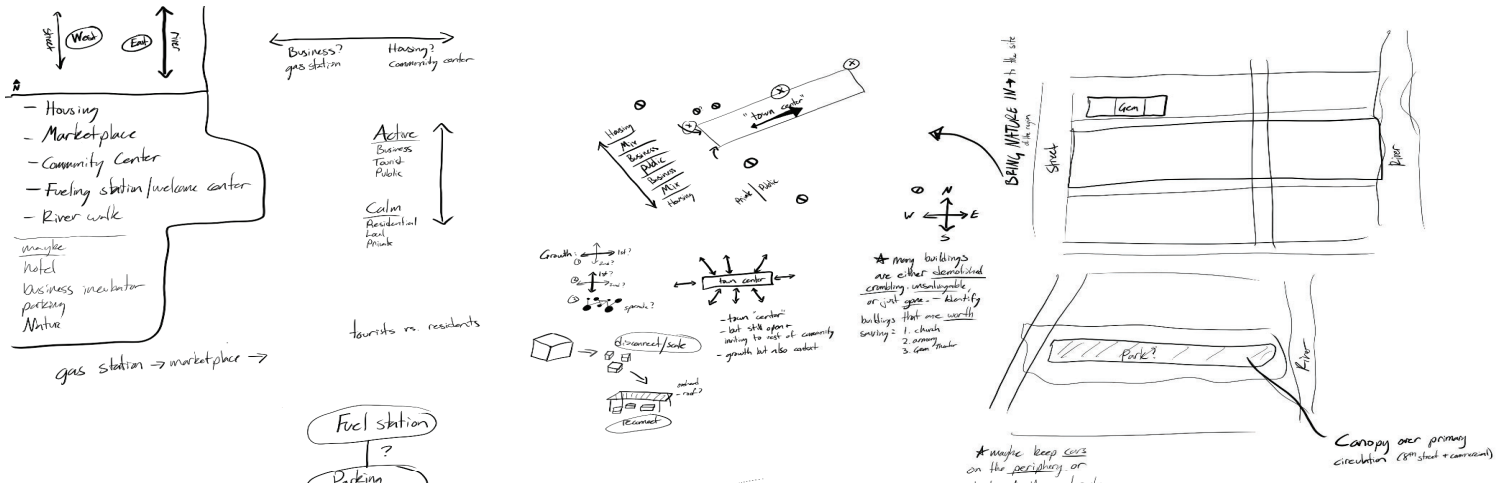 street
West
East
River
N
- Housing
- Marketplace
- Community Center
- Fueling station/welcome center
- River walk
maybe
hotel
business incubator
parking
Nature
gas station → marketplace →
Business?
gas station
Housing?
community center
Active
Business
Tourist
Public
Calm
Residential
Local
Private
tourists vs. residents
Fuel station
?
Parking
Housing
Mix
Business
Public
Business
Mix
Housing
"town center"
Private / Public
Growth:
① 1st?
2nd?
② 1st?
2nd?
③ sporadic?
town center
- town "center"
- but still open +
inviting to rest of community
- growth but also contact
disconnect/scale
overhead
- roof?
reconnect
N
W E
S
★ many buildings
are either demolished
crumbling, unsalvageable,
or just gone. - Identify
buildings that are worth
saving: 1. church
2. armory
3. Gem Theater
BRING NATURE IN → to the site
of the region
Street
Gem
River
Park?
River
Canopy over primary
circulation (8th street + commercial)
★ maybe keep cars
on the periphery or